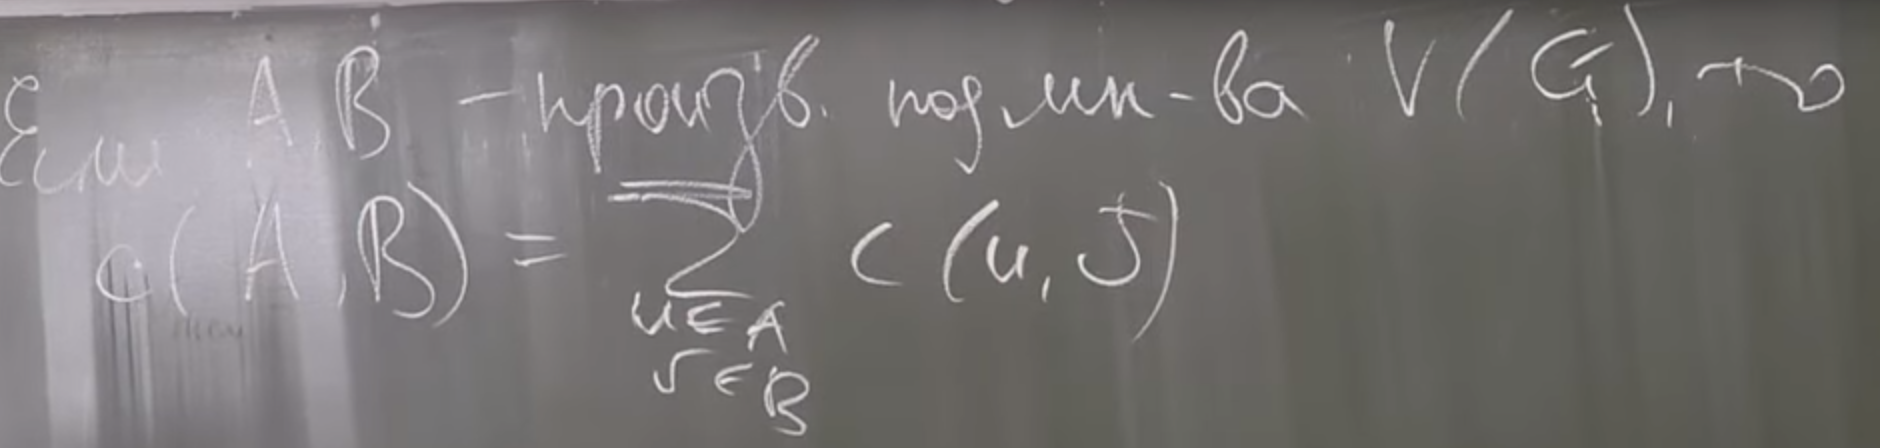 Если A, B - произв. подмн-ва V(G), то
c(A, B) = ∑ c(u, v)
u∈A
v∈B